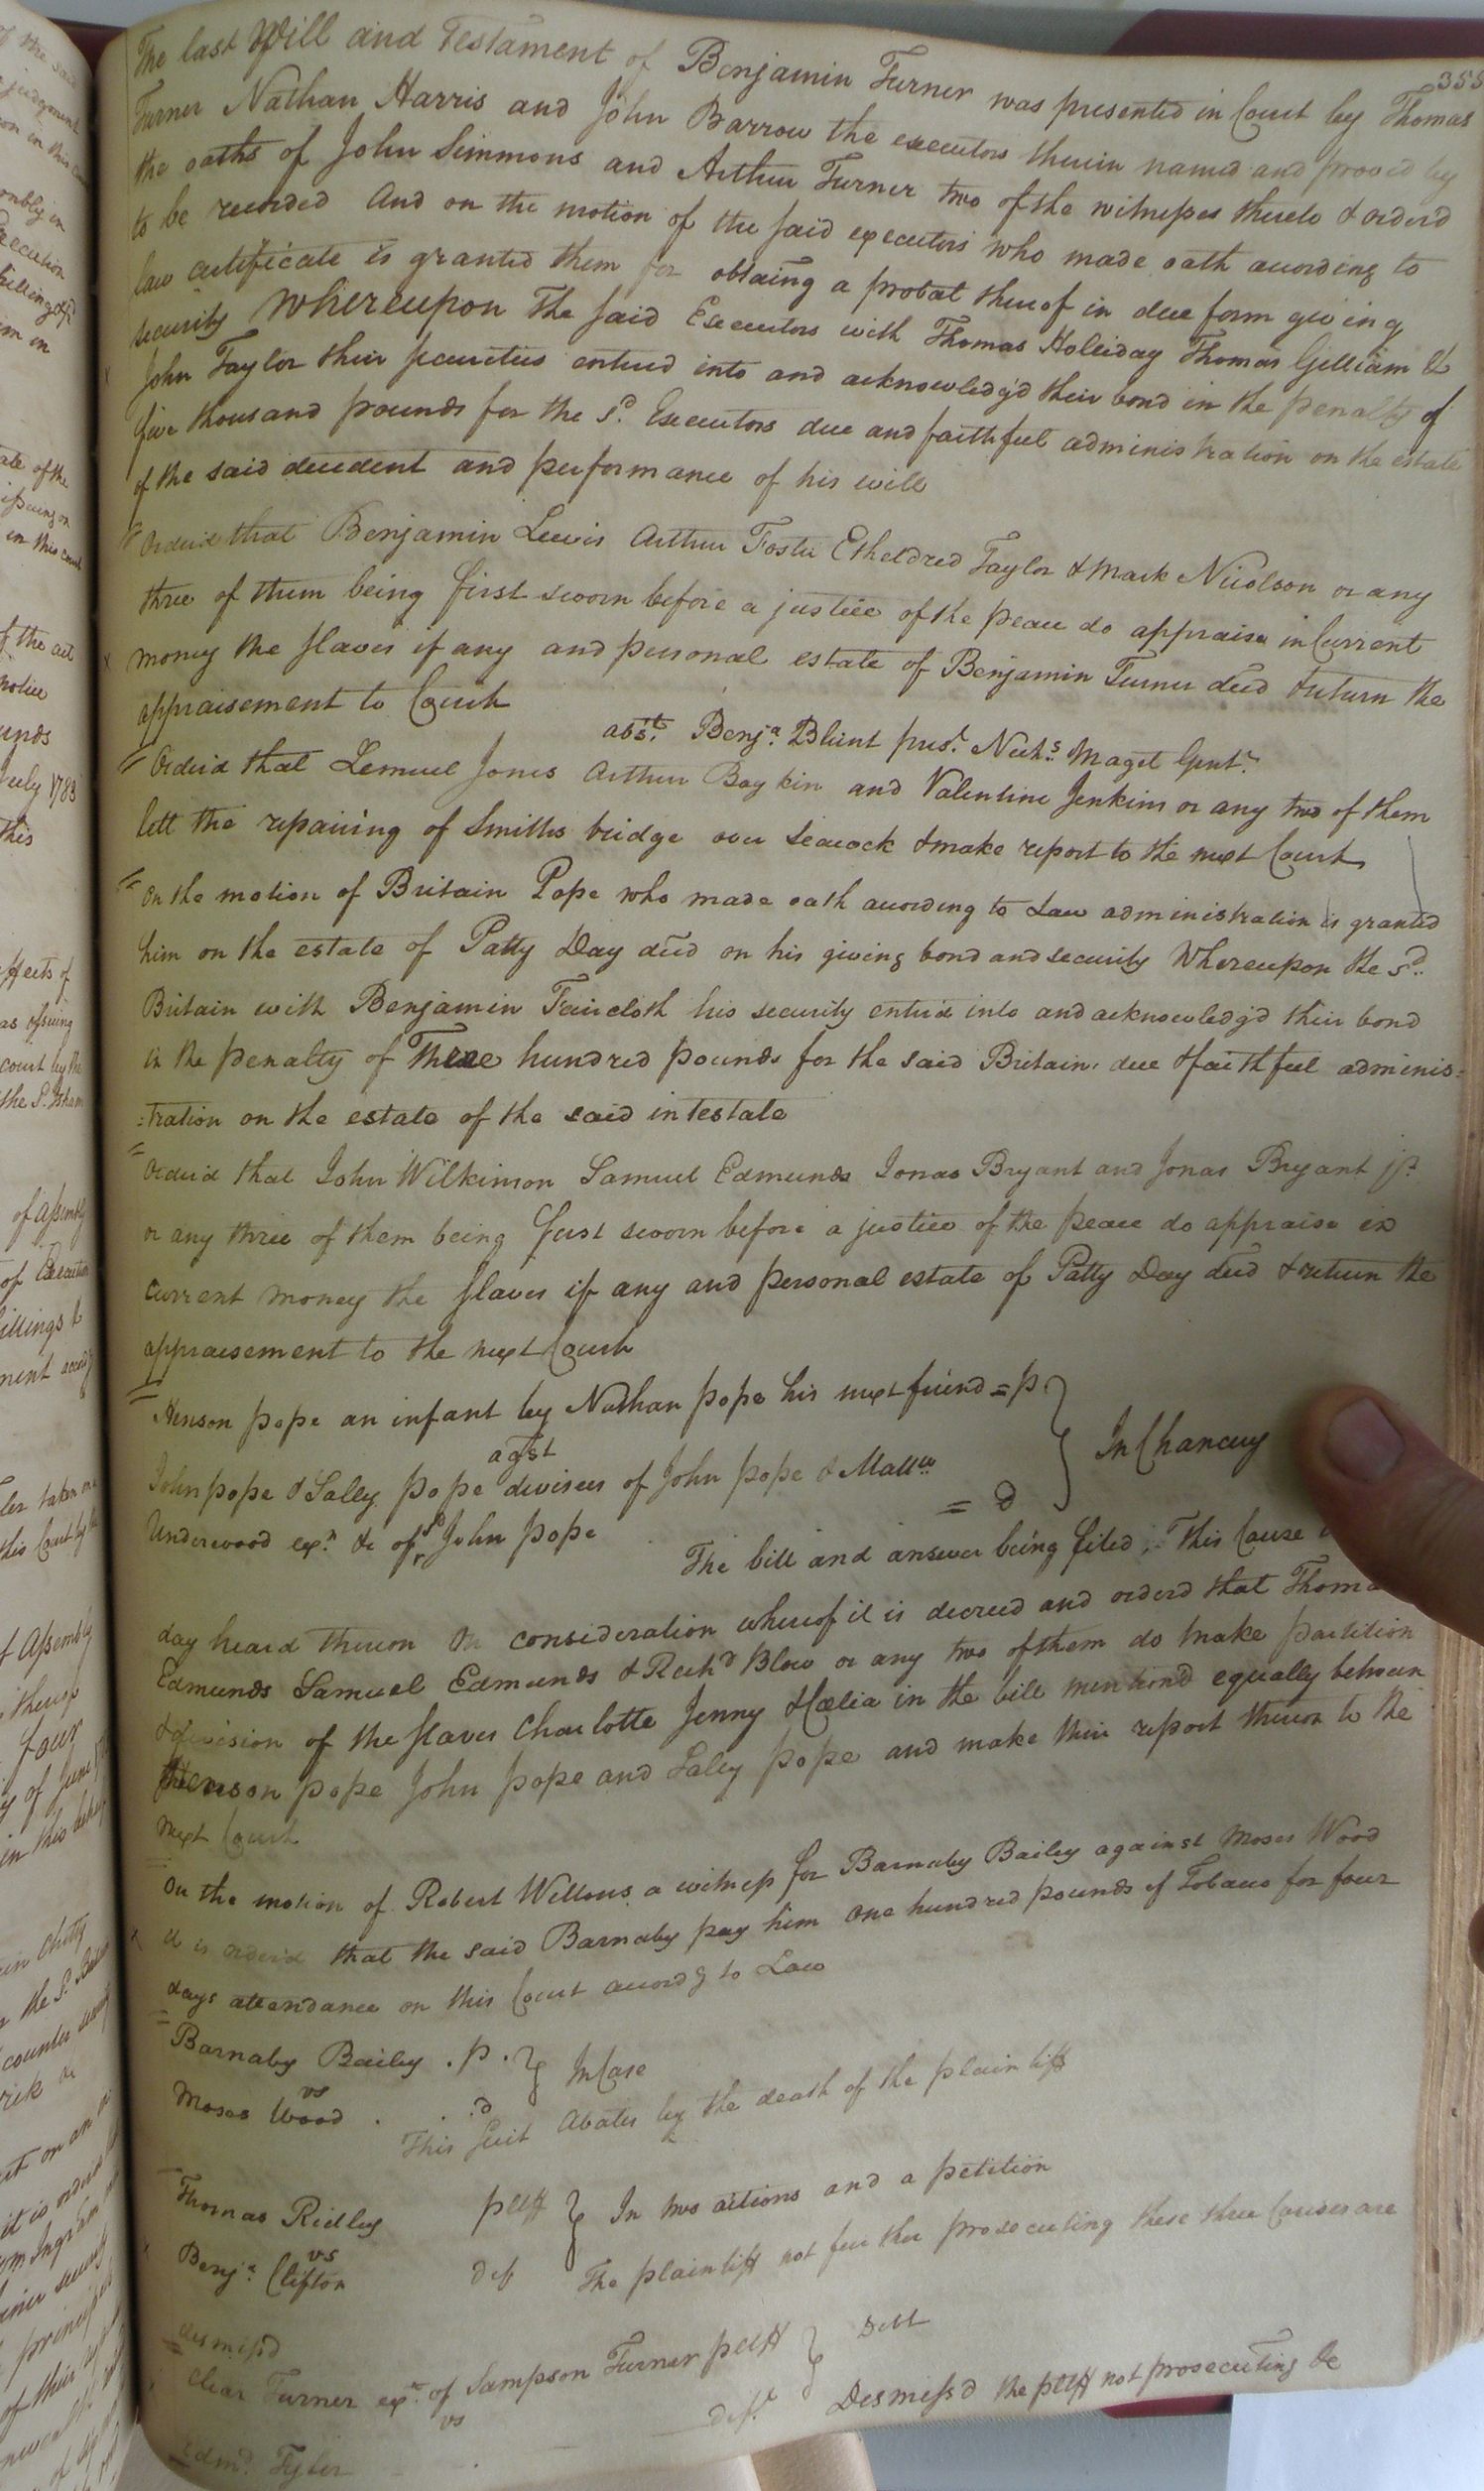 355
The last Will and Testament of Benjamin Turner was presented in Court by Thomas
Turner Nathan Harris and John Barrow the executors therein named and proved by
the oaths of John Simmons and Arthur Turner two of the witnesses thereto & orderd
to be recorded And on the motion of the said executors who made oath according to
law certificate is granted them for obtaing a probat thereof in due form giving
security Whereupon The said Executors with Thomas Holliday Thomas Gilliam &
John Taylor their securities entred into and acknowledg'd their bond in the penalty of
five thousand pounds for the sd. Executors due and faithful administration on the estate
of the said decedent and performance of his will
Orderd that Benjamin Lewis Arthur Foster Etheldred Taylor & Mark Nicolson or any
three of them being first sworn before a justice of the peace do appraise in Current
money the slaves if any and personal estate of Benjamin Turner decd & return the
appraisement to Court
abst. Benja. Blunt prest. Nichs. Maget Gent.
Orderd that Lemuel Jones Arthur Boykin and Valentine Jenkins or any two of them
lett the repairing of Smiths bridge over Seacock & make report to the next Court
On the motion of Britain Pope who made oath according to Law administration is granted
him on the estate of Patty Day decd on his giving bond and security Whereupon the sd.
Britain with Benjamin Faircloth his security entred into and acknowledg'd their bond
in the penalty of Three hundred pounds for the said Britain due & faithful adminis=
=tration on the estate of the said intestate
Orderd that John Wilkinson Samuel Edmunds Jonas Bryant and Jonas Bryant jr.
or any three of them being first sworn before a justice of the peace do appraise in
current money the slaves if any and personal estate of Patty Day decd & return the
appraisement to the next Court
Henson pope an infant by Nathan pope his next friend = p
agst
In Chancery
John pope & Sally pope devisees of John pope & Mattw.
= d
Underwood exr. &c of sd John pope
The bill and answer being filed, This Cause
day heard thereon On consideration whereof it is decreed and orderd that Thomas
Edmunds Samuel Edmunds & Richd Blow or any two of them do make partition
& division of the slaves Charlotte Jenny & Celia in the bill mention'd equally between
Henson pope John pope and Saley pope and make their report thereon to the
next Court
On the motion of Robert Wellons a witness for Barnaby Bailey against Moses Wood
it is orderd that the said Barnaby pay him one hundred pounds of Tobacco for four
days attendance on this Court accordg to Law
Barnaby Bailey . p .
vs
In Case
Moses Wood . . . d
This suit Abates by the death of the plaintiff
Thomas Ridley pltff
vs
In two actions and a petition
Benja. Clifton def
The plaintiff not further prosecuting these three Causes are
dismissd
Clear Turner exr. of Sampson Turner pltff
vs
Debt
deft.
Dismissd the pltff not prosecuting &c
Edmd. Tyler